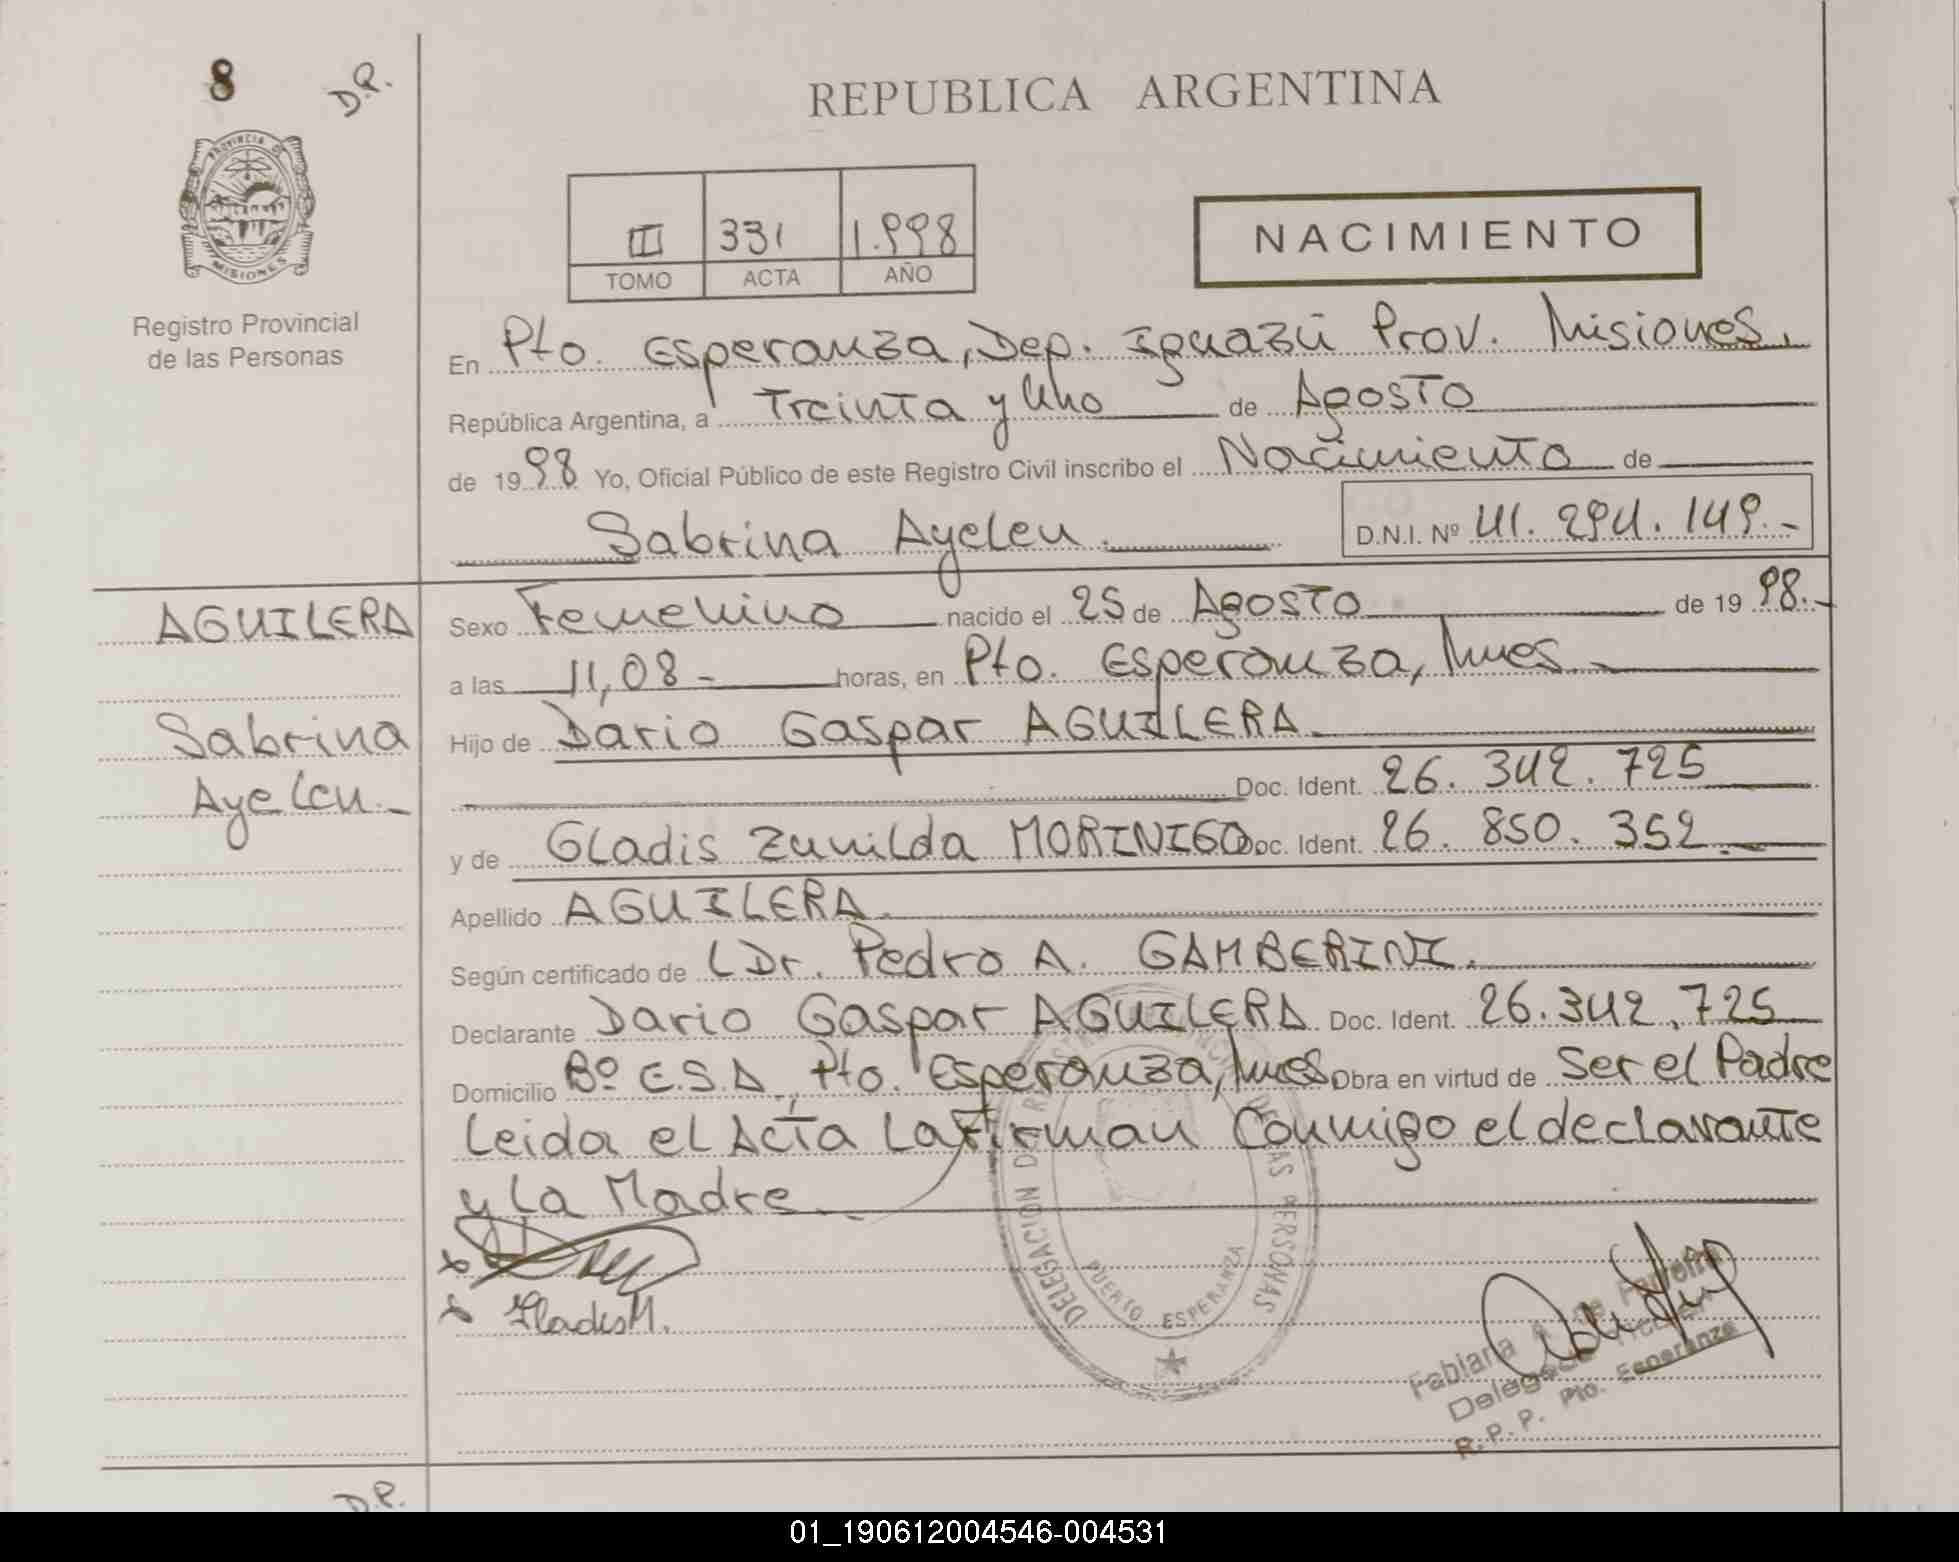 8
D.P.
PROVINCIA DE
MISIONES
Registro Provincial
de las Personas
REPUBLICA ARGENTINA
III 331 1.998
TOMO ACTA AÑO
NACIMIENTO
En Pto. Esperanza, Dep. Iguazú Prov. Misiones.
República Argentina, a Treinta y Uno de Agosto
de 1998 Yo, Oficial Público de este Registro Civil inscribo el Nacimiento de
Sabrina Ayelen. D.N.I. Nº 41.294.149.-
AGUILERA
Sabrina
Ayelen.-
Sexo Femenino nacido el 25 de Agosto de 1998.-
a las 11,08- horas, en Pto. Esperanza, Mnes.
Hijo de Dario Gaspar AGUILERA.
Doc. Ident. 26.342.725
y de Gladis Zunilda MORINIGO Doc. Ident. 26.850.352.
Apellido AGUILERA.
Según certificado de (Dr. Pedro A. GAMBERINI.
Declarante Dario Gaspar AGUILERA Doc. Ident. 26.342.725
Domicilio Bº E.S.A, Pto. Esperanza, Mnes Obra en virtud de Ser el Padre
Leida el Acta La Firman Conmigo el declarante
y La Madre.
x
x Gladis M.
DELEGACION REGISTRO PROVINCIAL DE LAS PERSONAS
PUERTO ESPERANZA
Fabiana A. de Ferreira
Delegada Titular
R.P.P. Pto. Esperanza
D.P.
01_190612004546-004531